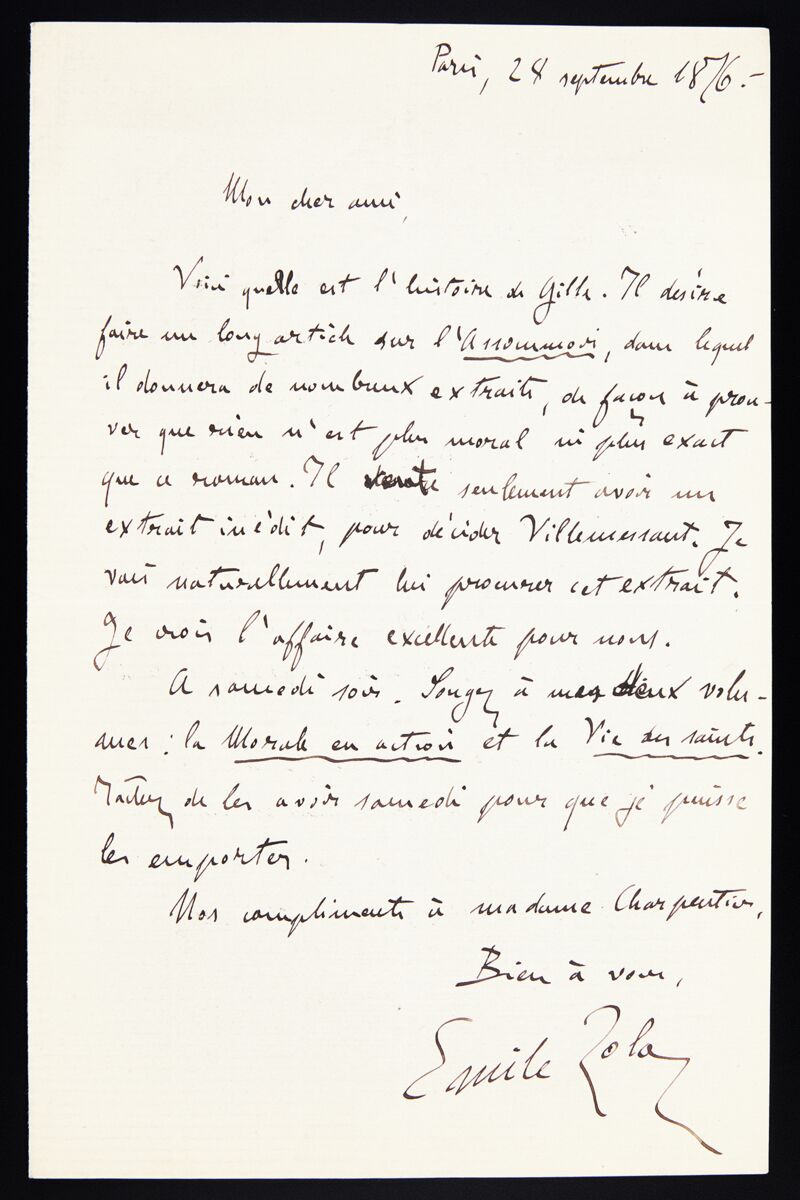 Paris, 28 septembre 1876.-
Mon cher ami,
Voici quelle est l'histoire de Gille. Il désire
faire un long article sur l'Assommoir, dans lequel
il donnera de nombreux extraits, de façon à prou-
ver que rien n'est plus moral ni plus exact
que ce roman. Il seulement avoir un
extrait inédit, pour décider Villemessant. Je
vais naturellement lui procurer cet extrait.
Je crois l'affaire excellente pour nous.
A samedi soir. Songez à mes deux volu-
mes : la Morale en action et la Vie des saints.
Tâchez de les avoir samedi pour que je puisse
les emporter.
Nos compliments à madame Charpentier,
Bien à vous,
Emile Zola